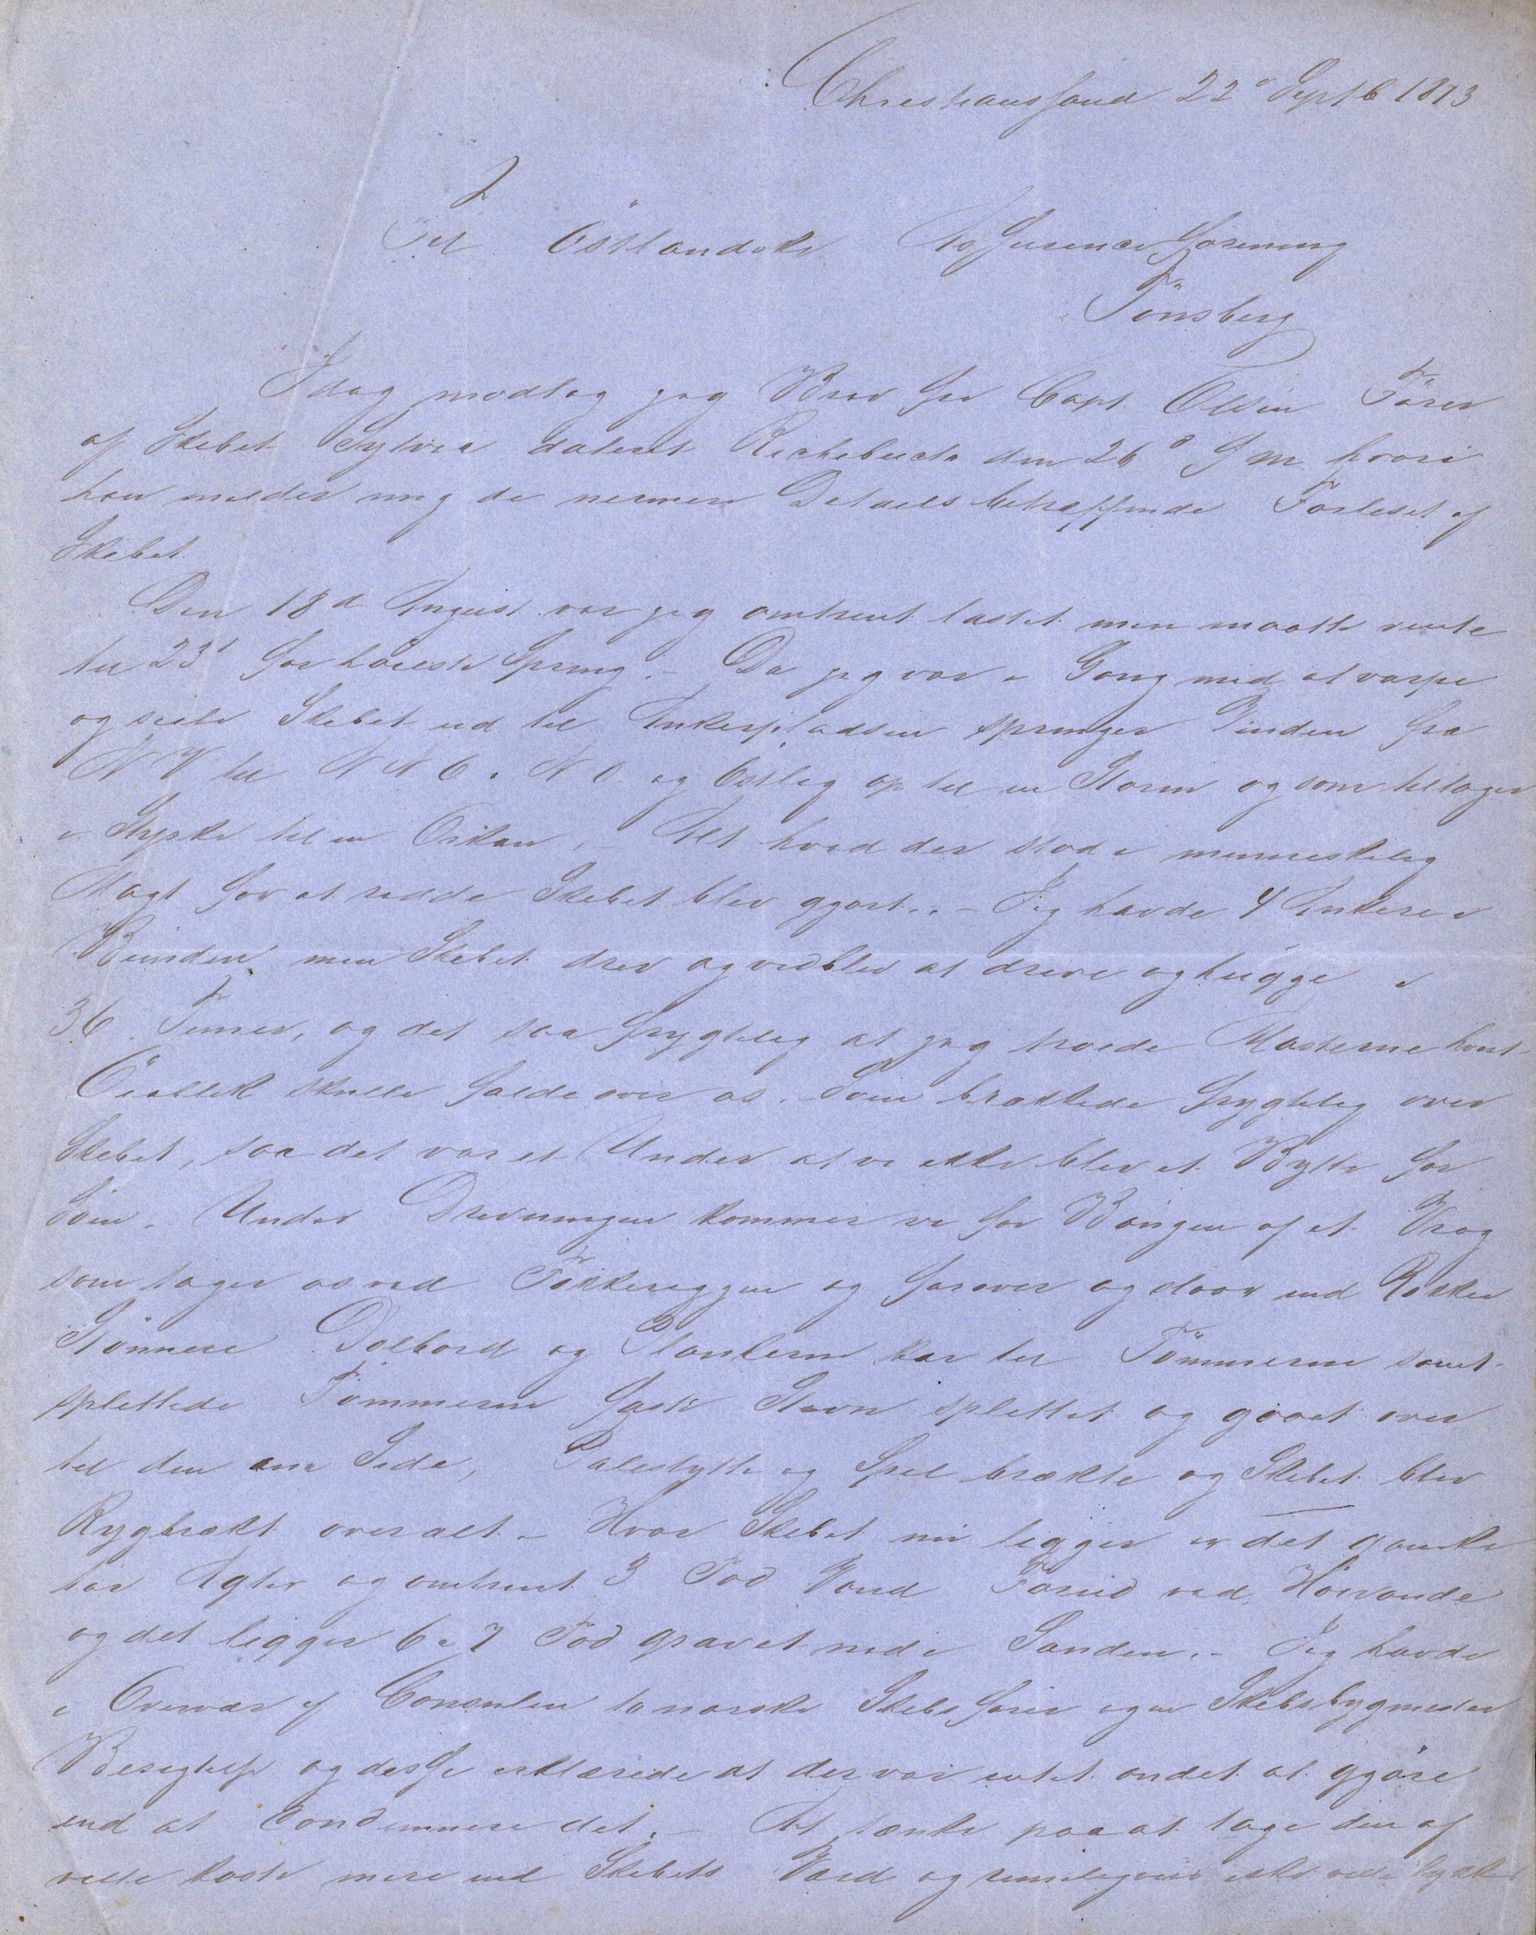 Christianssand 22' Septb 1873
Til Östlandske Assurance Forening
Tönsberg
Idag modtog jeg Brev fra Capt. Olsen Förer
af Skibet Sylvia dateret Richebucto den 26' f m hvori
han melder mig de nermere Details betræffende Forliset af
Skibet
Den 18d August var jeg omtrent lastet men maatte vente
til 23' for höieste Spring. – Da jeg var i Gang med at varpe
og seile Skibet ud til Ankerpladsen springer Vinden fra
N V til N N O. N O og Östlig op til en Storm og som tiltager
i Styrke til en Orkan. – Alt hvad der stod i menneskelig
Magt for at redde Skibet blev gjort. – Jeg havde 4 Ankere i
Bunden men Skibet drev og vedblev at drive og hugge i
36 Timer, og det saa frygtelig at jeg troede Masterne hvert
Öieblik skulle falde over os. Söen brækkede frygtelig over
Skibet, saa det var et Under at vi ikke blev et Bytte for
Söen. Under Drivningen kommer vi for Bougen af et Vrag
som tager os ved Fokkeriggen og forover og slaar ind Rækker
Stönner Dolbord og Plankerne klar til Tömmerne samt
splittede Tömmerne Faste Stævn splittet og gaaet over
til den ene Side, Palestytte og Spil brækte og Skibet blev
Rygbrækt overalt. – Hvor Skibet nu ligger er det ganske
tör Agter og omtrent 3 Fod Vand Forud ved Höivande
og det ligger 6 a 7 Fod gravet ned i Sanden. – Jeg havde
i Overvær af Consulen to norske Skibsförer og en Skibsbygmester
Besigtelse og disse erklærede at der var intet andet at gjöre
end at Condemnere det. – At tænke paa at tage den af
vilde koste mere end Skibets Værd og rimeligvis ikke vilde lykkes